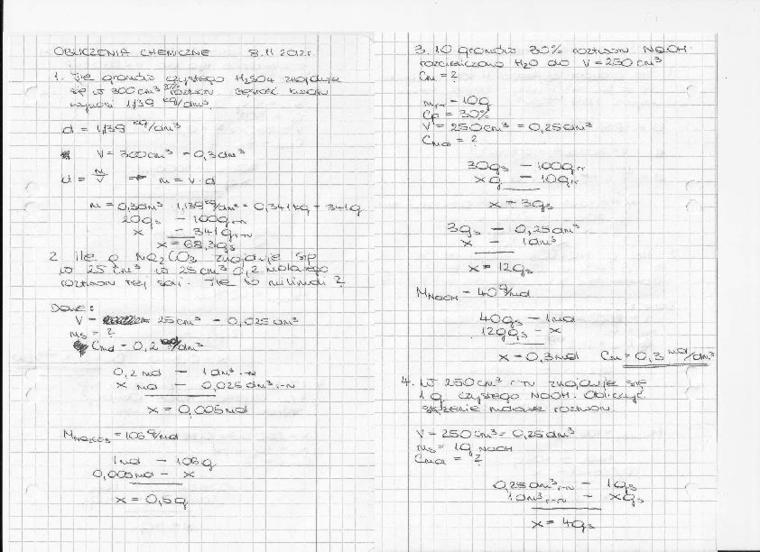 OBLICZENIA CHEMICZNE 8.11.2012r.
1. Ile gramów czystego H2SO4 znajduje
się w 300cm³ 20% roztworu gęstość kwasu
wynosi 1,139 kg/dm³.
d = 1,139 kg/dm³
V = 300cm³ = 0,3dm³
d = m/V → m = V · d
m = 0,3dm³ · 1,139 kg/dm³ = 0,341kg = 341g
20gs – 100gr-r
x – 341gr-r
x = 68,3gs
2. Ile g Na2CO3 znajduje się
w 25 cm³ w 25 cm³ 0,2 molowego
roztworu tej soli. Ile to milimoli?
Dane:
V = 25cm³ = 0,025dm³
ms = ?
Cmol = 0,2 mol/dm³
0,2 mol – 1dm³ r-r
x mol – 0,025dm³ r-r
x = 0,005mol
MNa2CO3 = 106g/mol
1mol – 106g
0,005mol – x
x = 0,5g
3. 10 gramów 30% roztworu NaOH
rozcieńczono H2O do V = 250cm³
Cm = ?
mr-r = 10g
Cp = 30%
V = 250cm³ = 0,25dm³
Cmol = ?
30gs – 100gr-r
xg – 10gr-r
x = 3gs
3gs – 0,25dm³
x – 1dm³
x = 12gs
MNaOH = 40g/mol
40gs – 1mol
12gs – x
x = 0,3mol Cm = 0,3 mol/dm³
4. W 250cm³ r-ru znajduje się
1g czystego NaOH. Obliczyć
stężenie molowe roztworu.
V = 250cm³ = 0,25dm³
ms = 1g NaOH
Cmol = ?
0,25dm³ r-r – 1gs
1dm³ r-r – xgs
x = 4gs